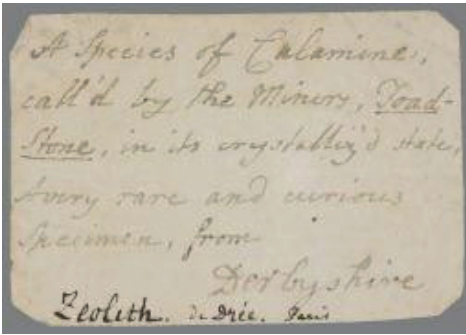 A Species of Calamine,
call'd by the Miners, Toad-
Stone, in its crystalliz'd state,
A very rare and curious
Specimen, from
Derbyshire
Zeolith. de Drée. Paris